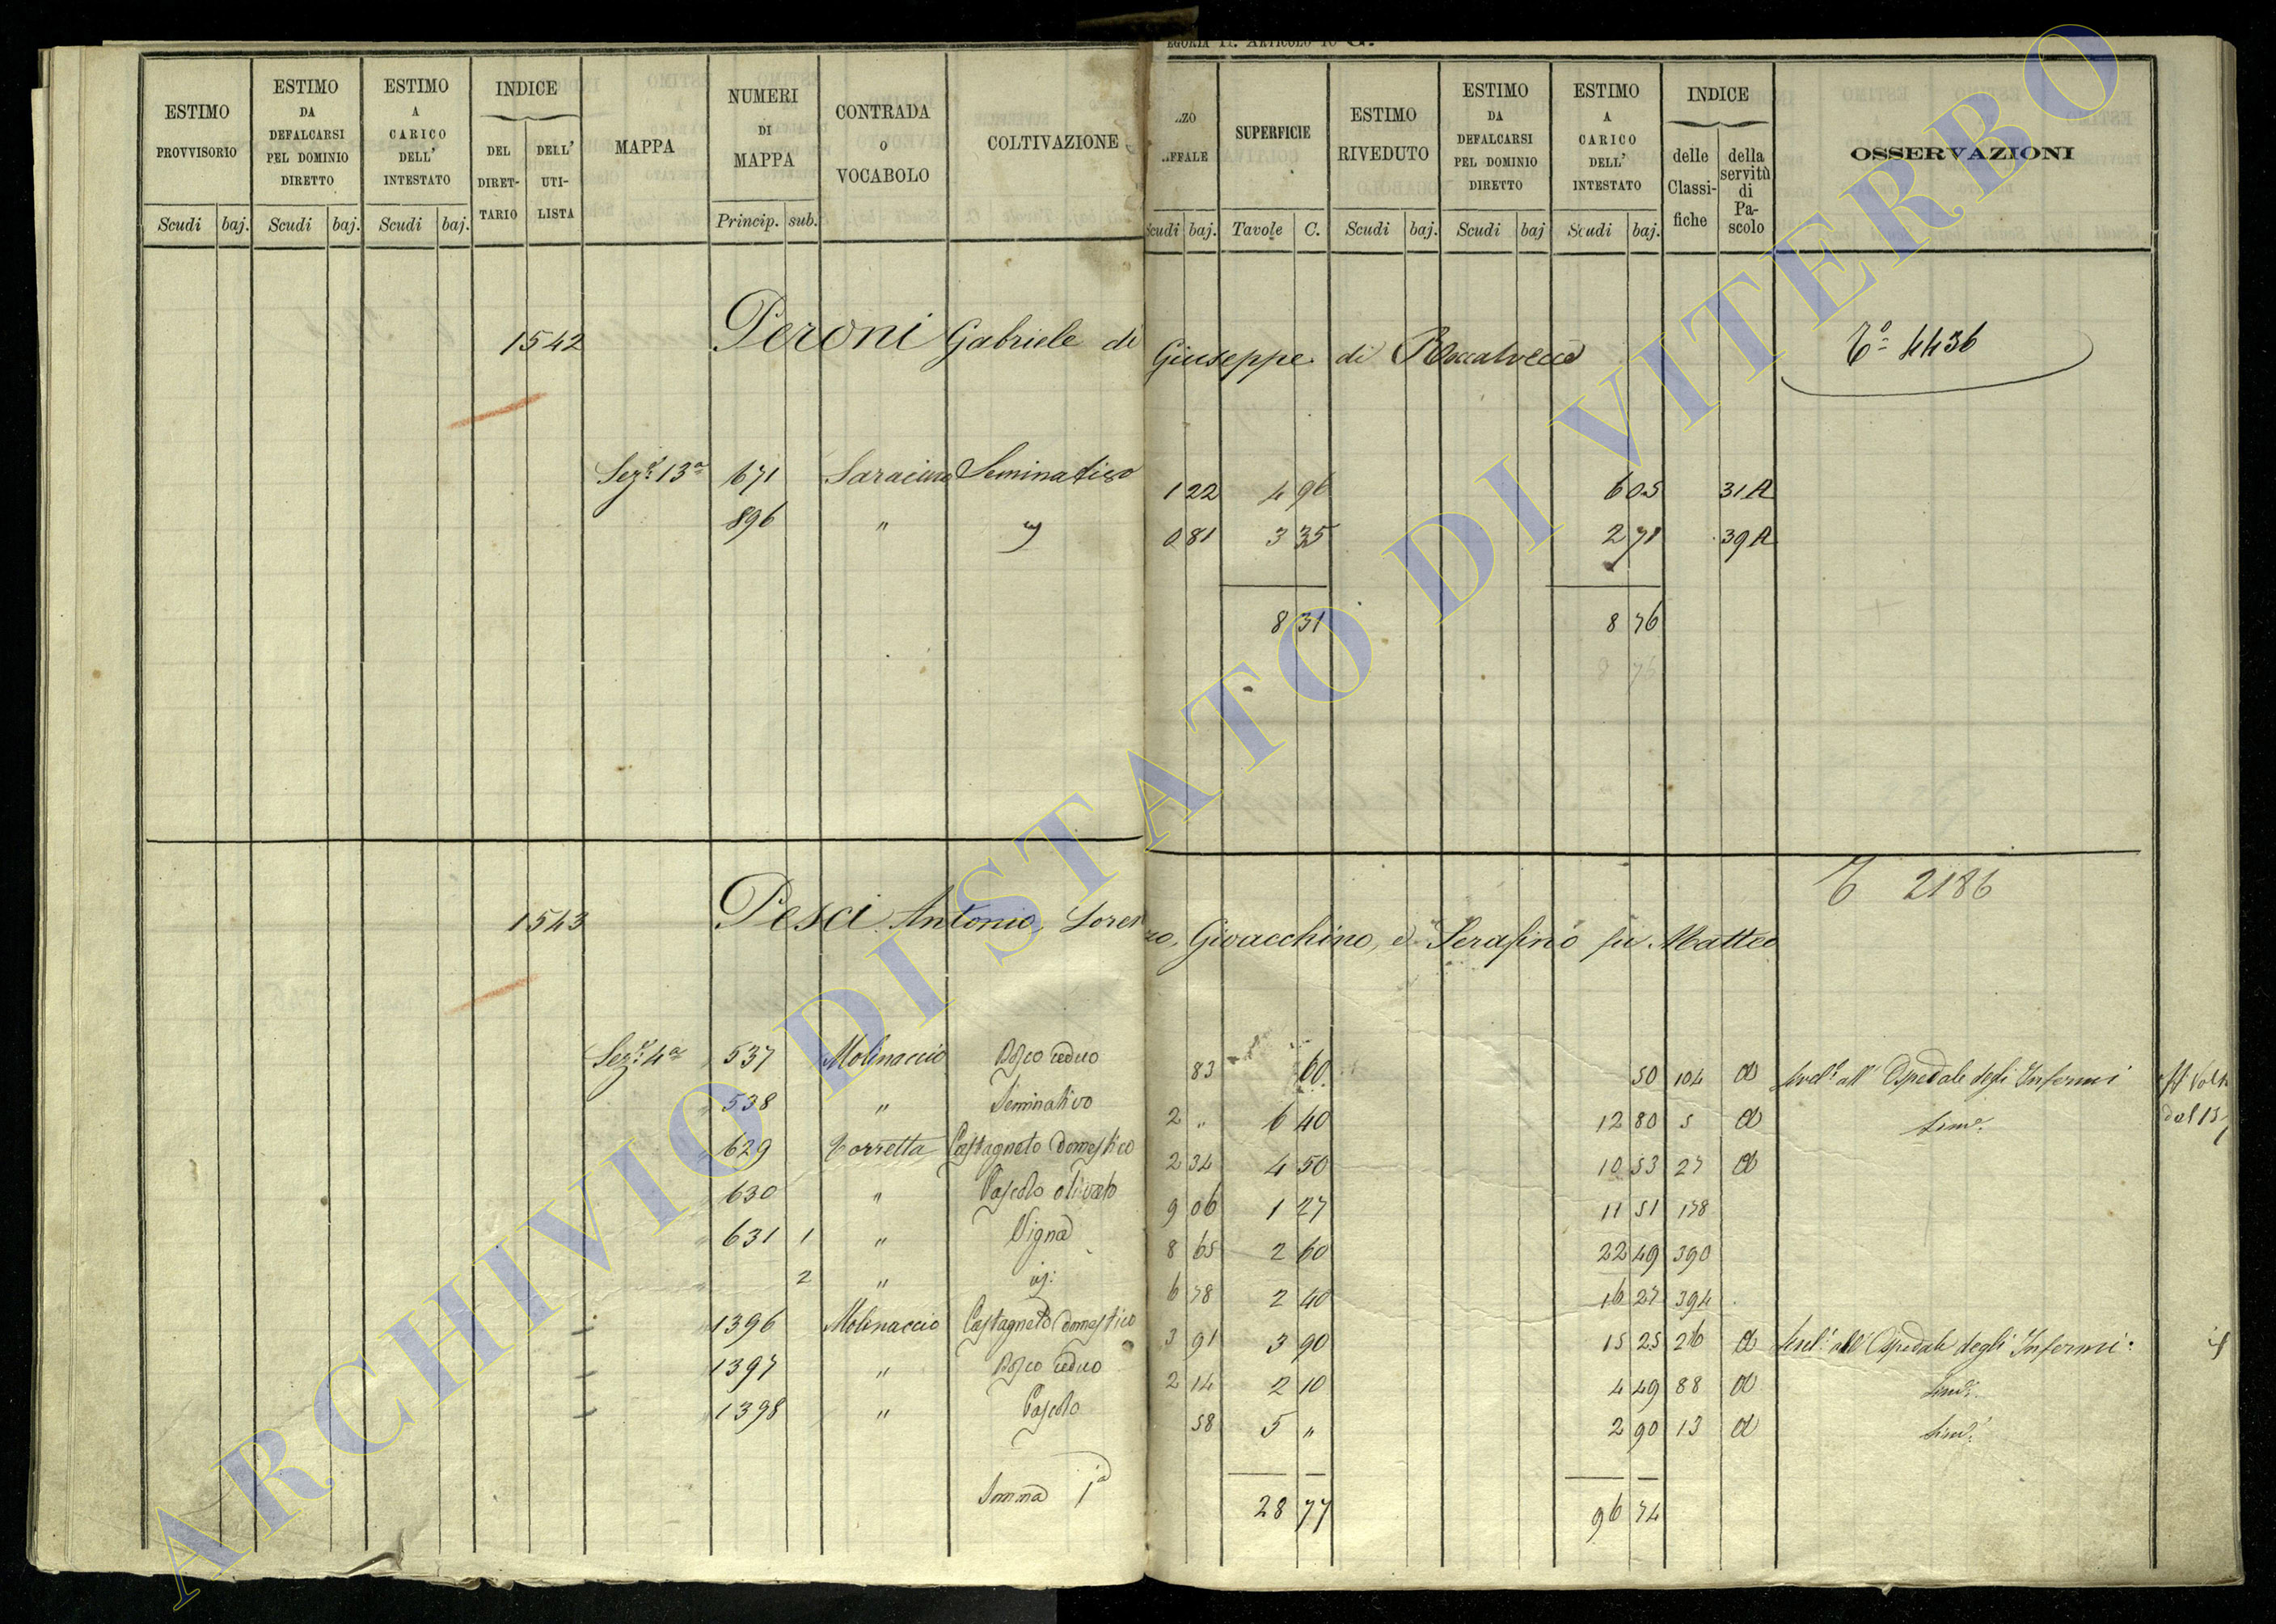 EGORIA II. ARTICOLO 10 G.
ESTIMO PROVVISORIO
ESTIMO DA DEFALCARSI PEL DOMINIO DIRETTO
ESTIMO A CARICO DELL' INTESTATO
INDICE
DEL DIRET-TARIO
DELL' UTI-LISTA
MAPPA
NUMERI DI MAPPA
CONTRADA o VOCABOLO
COLTIVAZIONE
Scudi baj. Scudi baj. Scudi baj. Princip. sub.
ZO
FFALE
SUPERFICIE
ESTIMO RIVEDUTO
ESTIMO DA DEFALCARSI PEL DOMINIO DIRETTO
ESTIMO A CARICO DELL' INTESTATO
INDICE
delle Classi-fiche
della servitù di Pa-scolo
OSSERVAZIONI
Scudi baj. Tavole C. Scudi baj. Scudi baj Scudi baj.
1542 Peroni Gabriele di Giuseppe di Roccalvecce
Tº 4436
Sezº 13ª 671 Saracino Seminativo 1 22 4 96 6 05 31 A
896 " " 0 81 3 35 2 71 39 A
8 31 8 76
8 76
1543 Pesci Antonio, Lorenzo, Gioacchino, e Serafino fu Matteo
T 2186
Sezº 4ª 537 Molinaccio Bosco ceduo 83 60 50 104 a all' Ospedale degli Infermi
538 " Seminativo 2 " 6 40 12 80 5 a
629 Torretta Castagneto domestico 2 34 4 50 10 53 27 a
630 " Pascolo olivato 9 06 1 27 11 51 178
631 1 " Vigna 8 65 2 60 22 49 390
2 " 6 78 2 40 16 27 394
1396 Molinaccio Castagneto domestico 3 91 3 90 15 25 26 a all' Ospedale degli Infermi
1397 " Bosco ceduo 2 14 2 10 4 49 88 a
1398 " Pascolo 58 5 " 2 90 13 a
Somma 1ª 28 77 96 74
ARCHIVIO DI STATO DI VITERBO